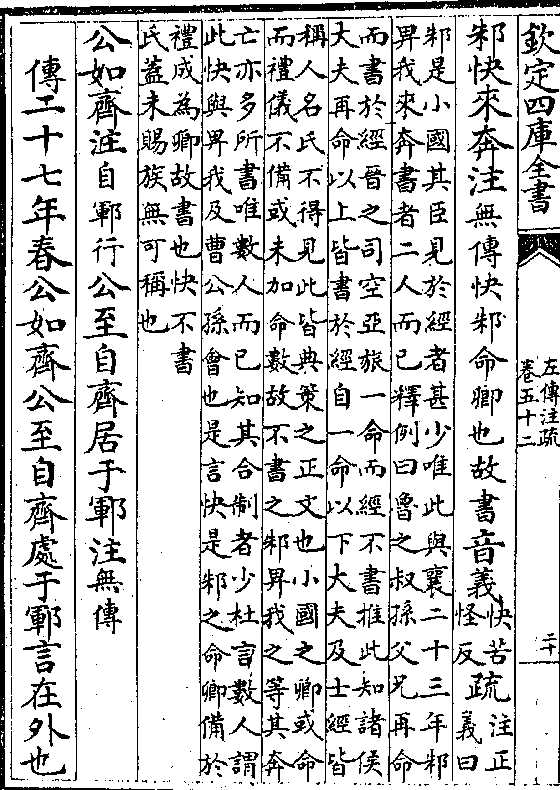 欽定四庫全書
左傳注疏
卷五十二
二十
邾快來奔注無傳快邾命卿也故書音義快苦怪反疏注正義曰
邾是小國其臣見於經者甚少唯此與襄二十三年邾
畀我來奔書者二人而已釋例曰魯之叔孫父兄再命
而書於經晉之司空亞旅一命而經不書推此知諸侯
大夫再命以上皆書於經自一命以下大夫及士經皆
稱人名氏不得見此皆典策之正文也小國之卿或命
而禮儀不備或未加命數故不書之邾畀我之等其奔
亡亦多所書唯數人而已知其合制者少杜言數人謂
此快與畀我及曹公孫會也是言快是邾之命卿備於
禮成為卿故書也快不書
氏蓋未賜族無可稱也
公如齊注自鄆行公至自齊居于鄆注無傳
傳二十七年春公如齊公至自齊處于鄆言在外也